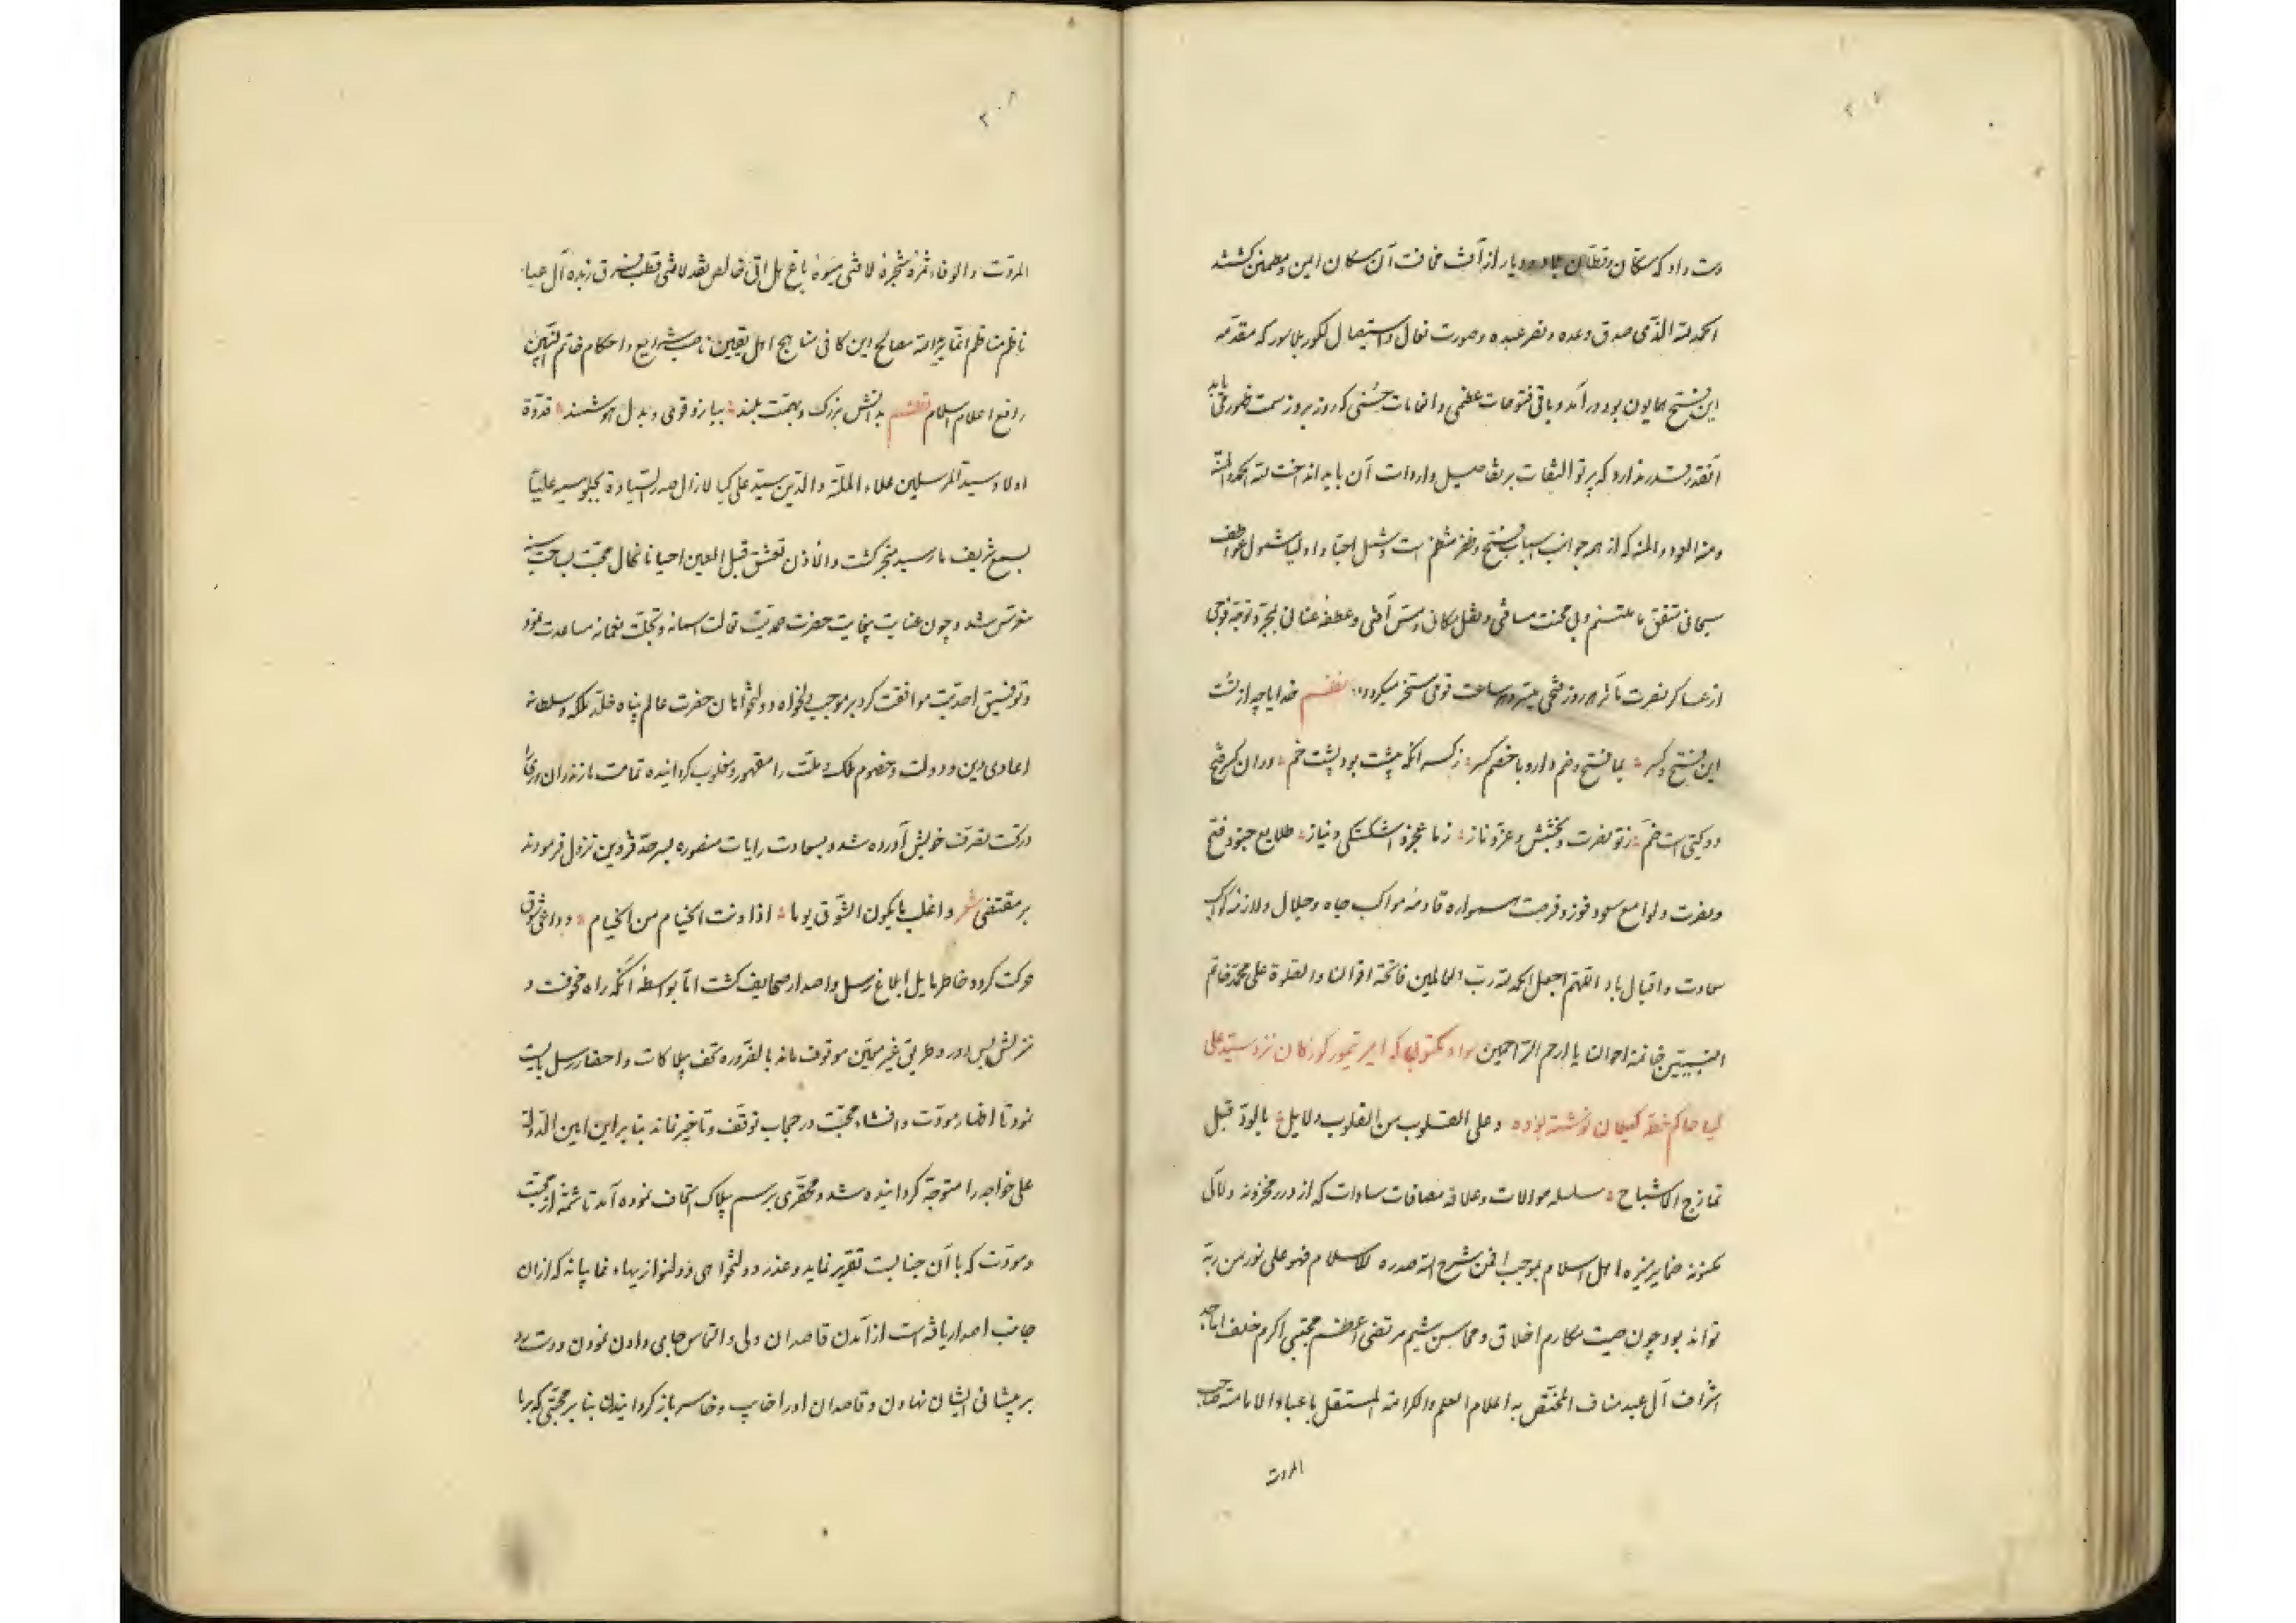 ۲۰۷
دست داد که سکان و قطان بلاد و دیار از آفت مخافت آن سکان ایمن و مطمئن کشتند
الحمد لله الذی صدق وعده و نصر عبده و صورت نعال و استیصال لکور بلاسور که مقدمه
این فتح همایون بود در آمد و باقی فتوحات عظمی و انعامات حسنی که روز بروز سمت ظهور می یابد
آنقدر قدر ندارد که پرتو التفات بر تفاصیل واردات آن باید انداخت لله الحمد و المنة
و منه العود و المنه که از همه جوانب اسباب فتح و ظفر منتظم است و شمل احبا و اولیا مشمول عواطف
سبحانی متفق ما ملتمسم وبی محنت مسافی و نقل مکانی و مس آفتی و عطفهٔ عنانی بمجرد توجه فوجی
از عساکر نصرت مآثر هر روز فتحی میسر و هر ساعت قومی مسخر میکردد نظم خدایا چه از تست
این فتح و کسر بما فتح و ضم دارد با خصم کسر ز کسر آنکه پشت بود پشت خم در ان کسر فتح
دو کیتی است ضم ز تو نصرت و بخشش و عز و ناز ز ما عجز و اشکستکی و نیاز طلایع جنود فتح
و نصرت و لوامع سعود فوز و فرجت همواره قادمه مواکب جاه و جلال و ملازمه کواکب
سعادت و اقبال باد اللهم اجعل الحمد لله رب العالمین فاتحة اقوالنا و الصلوة علی محمد خاتم
النبیین خاتمة احوالنا یا ارحم الراحمین سواد مکتوبی که امیر تیمور کورکان نزد سید علی
کیا حاکم خطه کیلان نوشته بوده و علی القلوب من القلوب دلایل بالود قبل
تمازج الاشباح سلسله موالات و علاقه مصافات سادات که از درر مخزونه و لآلی
مکنونه ضمایر منیره اهل اسلام بموجب افمن شرح الله صدره للاسلام فهو علی نور من ربه
تواند بود چون صیت مکارم اخلاق و محاسن شیم مرتضی اعظم مجتبی اکرم خلف اماجد
اشراف آل عبد مناف المختص به اعلام العلم و الکرامة المستقل باعباء الامامة صاحب
المروت
۲۰۸
المروّت و الوفاء ثمرهٔ شجرهٔ لا فتی میوهٔ باغ هل اتی خالص نقد لا فتی قطب شرق زبدهٔ آل عبا
ناظم مناظم اتقاء رایة مصالح این کافی مناهج اهل یقین ناصب شرایع و احکام خاتم النبیین
رافع اعلام اسلام نظم بدانش بزرک و بهمت بلند ببازو قوی و بدل هوشمند قدوة
اولاد سید المرسلین علاء الملة و الدین سید علی کیا لازال صدر السیادة بجلوسه علیّا
بسمع شریف ما رسید منجر کشت و الاذن تعشق قبل العین احیانا نهال محبت بساحت سینه
مغرّس شد و چون عنایت بی‌غایت حضرت صمدیت تعالت اسمائه و تجلت نعمائه مساعدت نمود
و توفیق احدیت موافقت کرد بر موجب دلخواه دولتخواهان حضرت عالم پناه خلد ملکه و سلطانه
اعادی دین و دولت و خصوم ملک و ملت را مقهور و مغلوب کردانیده تمامت مازندران و ری را
در تحت تصرف خویش آورده شد و بسعادت رایات منصوره بسرحد قزوین نزول فرمودند
بر مقتضی شعر و اغلب ما یکون الشوق یوما اذا دنت الخیام من الخیام دواعی شوق
حرکت کرد و خاطر مایل ابلاغ رسل و اصدار صحایف کشت اما بواسطهٔ آنکه راه مخوفت و
منزلش بس دور و طریق غیر معین موقوف ماند بالضروره تحف بیلاکات و احضار رسل بایست
نمود تا اظهار مودت و انشاء محبت در حجاب توقف و تاخیر نماند بنا برین امین الدوله
علی خواجه را متوجه کردانیده شد و محقری برسم بیلاک اتحاف نموده آمد تا شمهٔ از محبت
و مودت که با آن جنابست تقریر نماید و عذر دولتخواهی و دلنوازیهاء غایبانه که ازان
جانب اصدار یافته است از آمدن قاصدان ولی و التماس جای دادن نمودن و دست رد
بر پیشانی ایشان نهادن و قاصدان او را خایب و خاسر باز کردانیدن بنا بر محبتی که بر ما